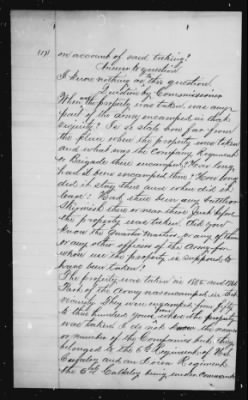 (17) on account of said taking?
Answer to question
I know nothing as to this question
Question by Commissioner
When the property was taken was any
part of the Army encamped in that
vicinity? If so state how far from
the place where the property was taken
and what was the Company, Regiment
or Brigade there encamped? How long
had it been encamped there? How long
did it stay there and when did it
leave? Had there been any battle or
skirmish there or near there just before
the property was taken? Did you
know the Quarter Master, or any of them
or any other officers of the Army
whom the property is supposed to
have been taken?
The property was taken in 1863 and 1864
Part of the Army was encamped in that
vicinity They were encamped from fifty
to three hundred yards from where the property
was taken I do not know the names
or number of the Companies but they
belonged to the 6th Regiment of
Cavalry and an Iowa Regiment
the 6th Cavalry being under command